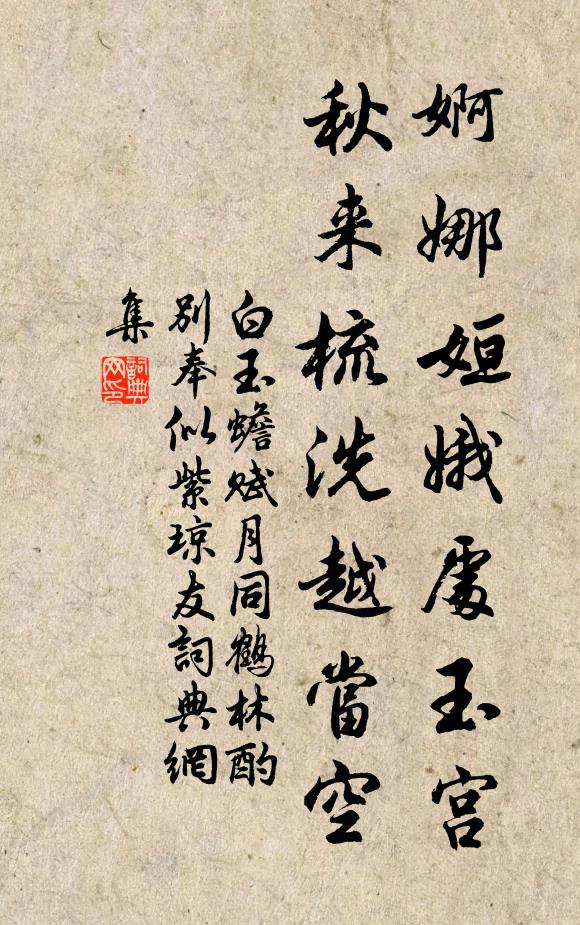 婀娜姮娥處玉宮
秋来梳洗越當空
白玉蟾赋月同鶴林酌
別奉似紫琼友詞典網
集
詞典网印